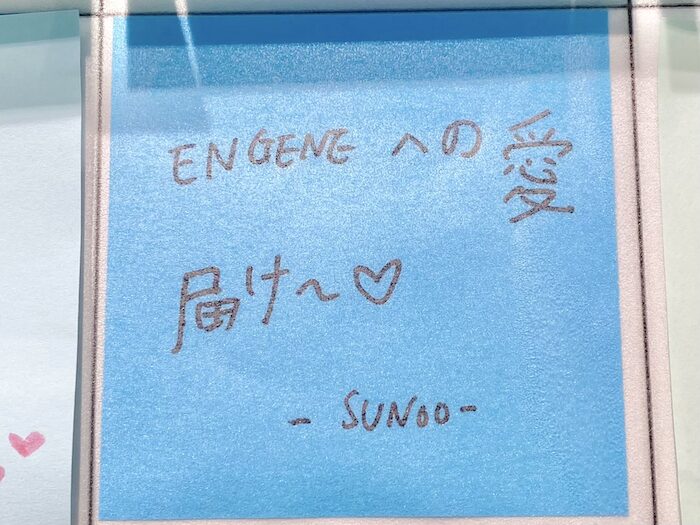 ENGENE への愛
届け〜♡
- SUNOO -